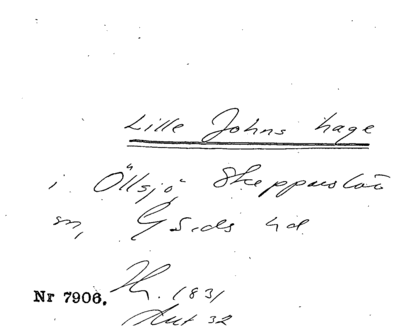 Lille Johns hage
i Öllsjö Skepparslöv
sn, Gärds hd
Nr 7906. 1831
Akt 32